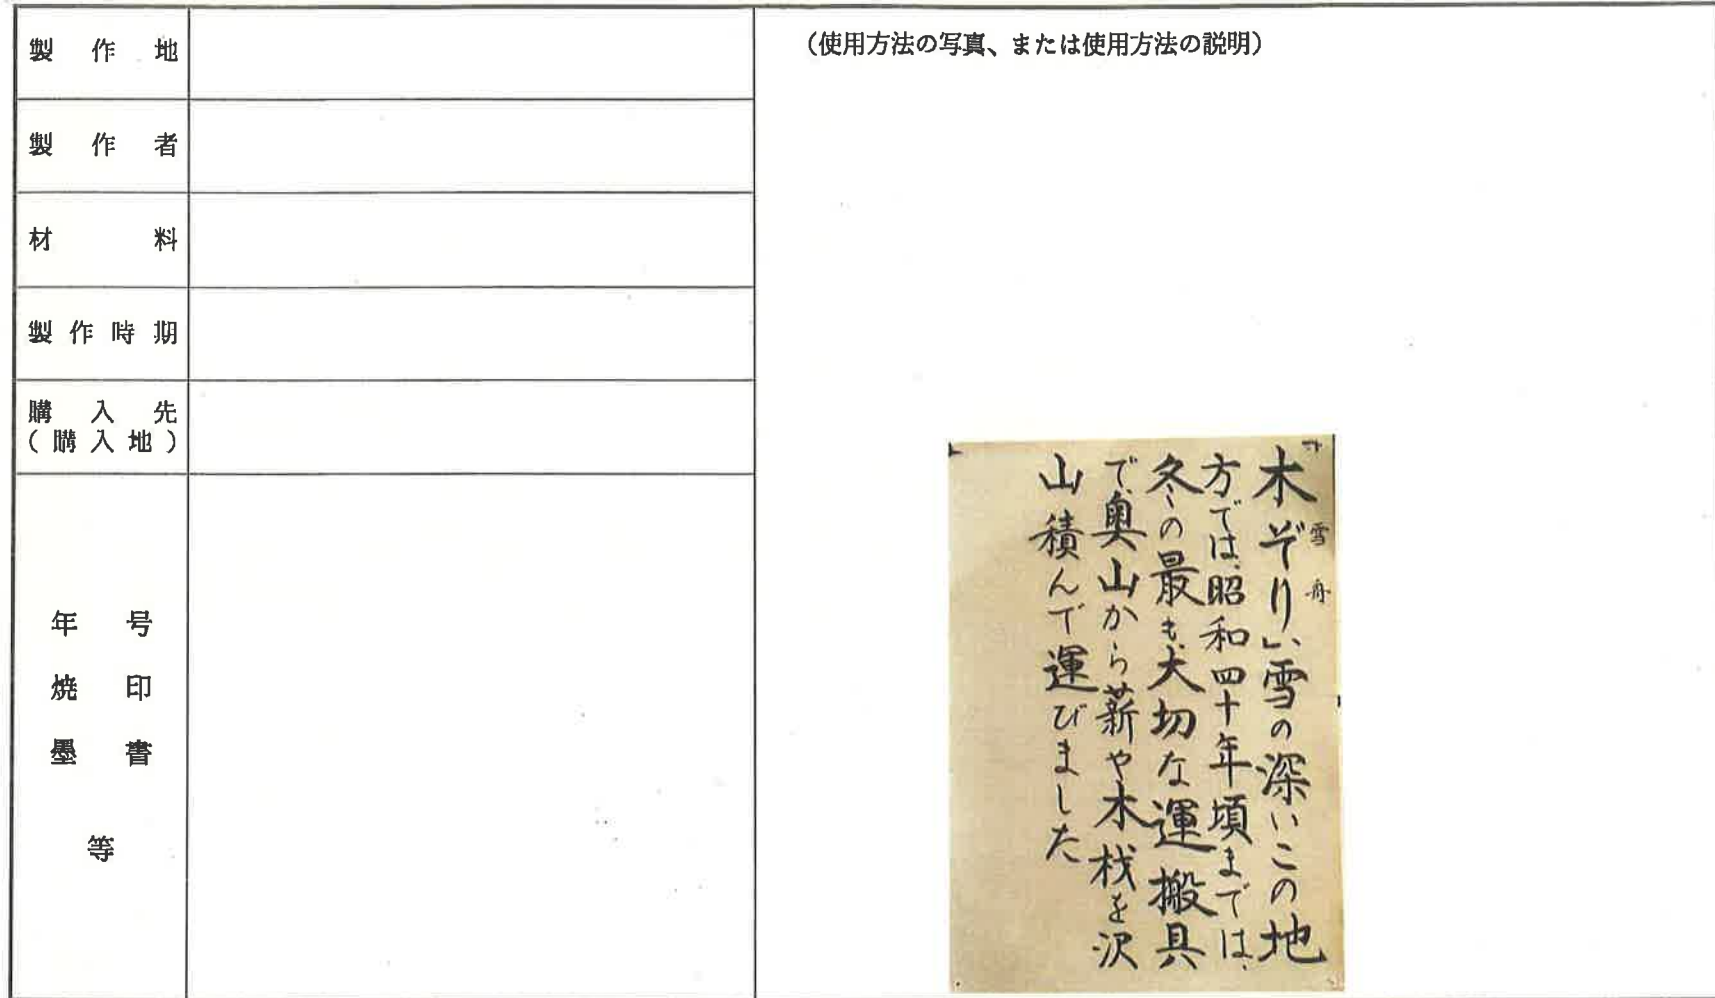 製作地
製作者
材料
製作時期
購入先
(購入地)
年号
焼印
墨書
等
(使用方法の写真、または使用方法の説明)
雪舟
木ぞり、雪の深いこの地
方では、昭和四十年頃までは、
冬の最も大切な運搬具
で、奥山から薪や木材を沢
山積んで運びました